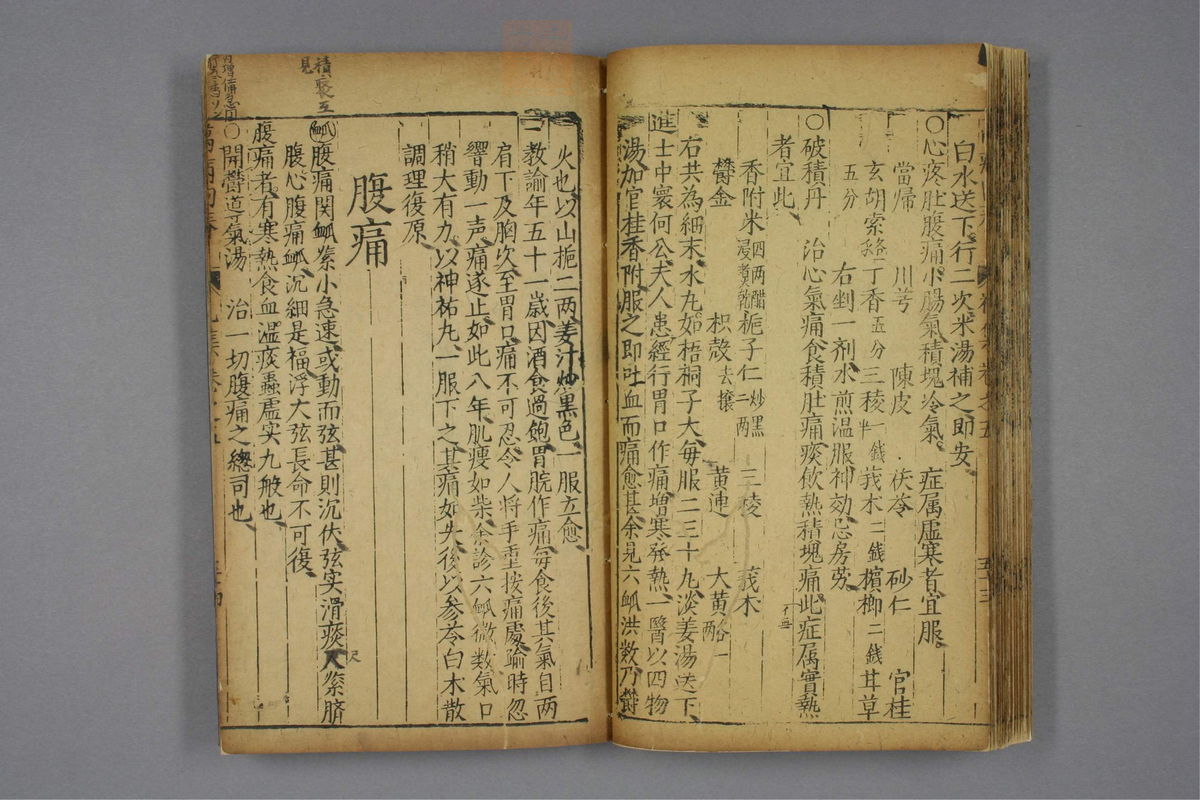 白水送下行二次米湯補之即安
○心疼肚腹痛小腸氣積塊冷氣 症属虛寒者宜服
當帰 川芎 陳皮 茯苓 砂仁 官桂
玄胡索各 丁香五分 三稜一錢 莪术二錢 檳榔二錢 甘草
五分 右剉一剂水煎温服神効忌房劳
○破積丹 治心氣痛食積肚痛痰飲熱積塊痛此症属實熱
者宜此
香附米四两醋浸煑乾 梔子仁炒黑二两 三稜 莪木
欝金 枳殻去穰 黄連 大黄各一两
右共為細末水丸如梧桐子大每服二三十丸淡姜湯送下
進士中寰何公夫人患經行胃口作痛增寒發熱一醫以四物
湯加官桂香附服之即吐血而痛愈甚余見六脈洪数乃欝
火也以山梔二两姜汁炒黑色一服立愈
一教諭年五十一歲因酒食過飽胃脘作痛每食後其氣自两
肩下及胸次至胃口痛不可忍令人將手重按痛處踰時忽
響動一声痛遂止如此八年肌瘦如柴余診六脈微数氣口
稍大有力以神祐丸一服下之其痛如失後以参苓白术散
調理復原
腹痛
脈腹痛関脈緊小急速或動而弦甚則沉伏弦实滑痰尺緊臍
腹心腹痛脈沉細是福浮大弦長命不可復
腹痛者有寒熱食血濕痰蟲虛实九般也
○開欝道氣湯 治一切腹痛之總司也
積聚互
見